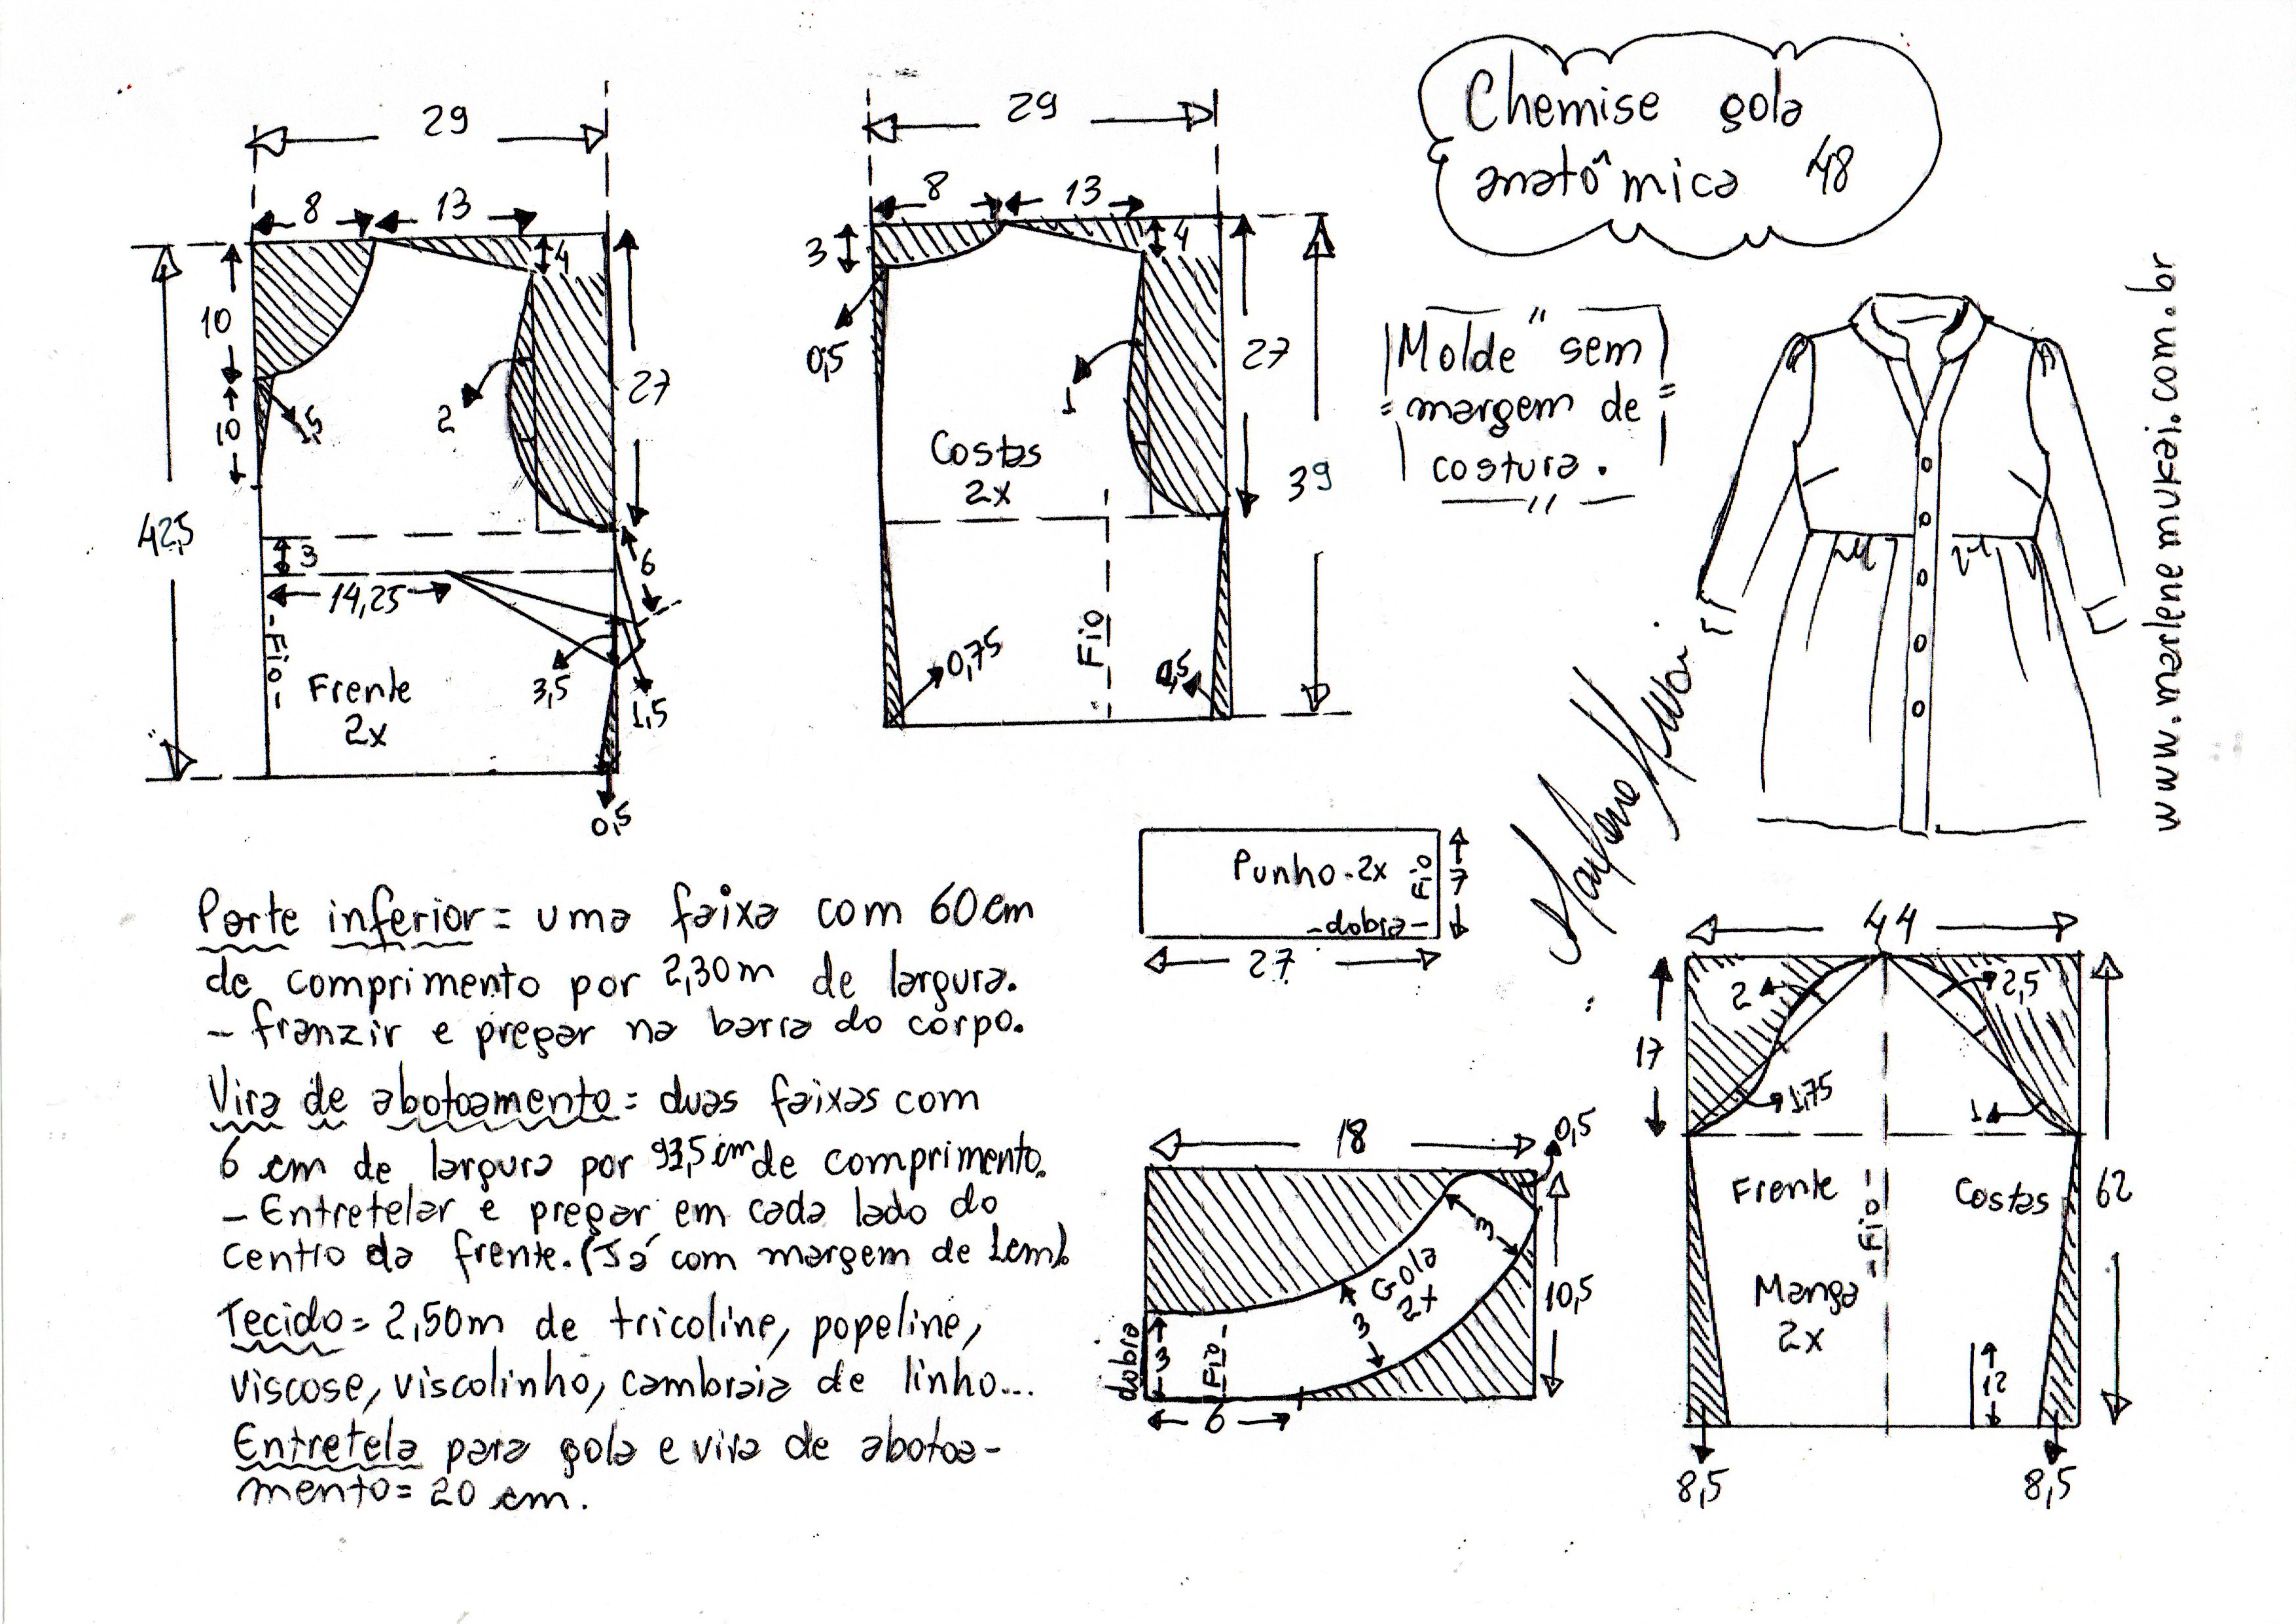 Chemise gola
anatômica 48
"Molde sem
margem de
costura."
www.marlenemukai.com.br
Marlene Mukai
29
8
13
4
10
10
1,5
2
27
42,5
3
14,25
6
3,5
1,5
0,5
-Fio-
Frente
2x
29
8
13
3
4
0,5
1
27
39
Costas
2x
Fio
0,75
0,5
Punho-2x
Fio
7
-dobra-
27
Parte inferior = uma faixa com 60cm
de comprimento por 2,30m de largura.
- franzir e pregar na barra do corpo.
Vira de abotoamento = duas faixas com
6 cm de largura por 93,5 cm de comprimento.
- Entretelar e pregar em cada lado do
centro da frente. (Já com margem de 1cm).
Tecido = 2,50m de tricoline, popeline,
viscose, viscolinho, cambraia de linho...
Entretela para gola e vira de abotoa-
mento = 20 cm.
18
0,5
3
Gola
2x
3
10,5
dobra
3
Fio-
6
44
2
2,5
17
1,75
1
Frente
Costas
62
-Fio-
Manga
2x
12
8,5
8,5